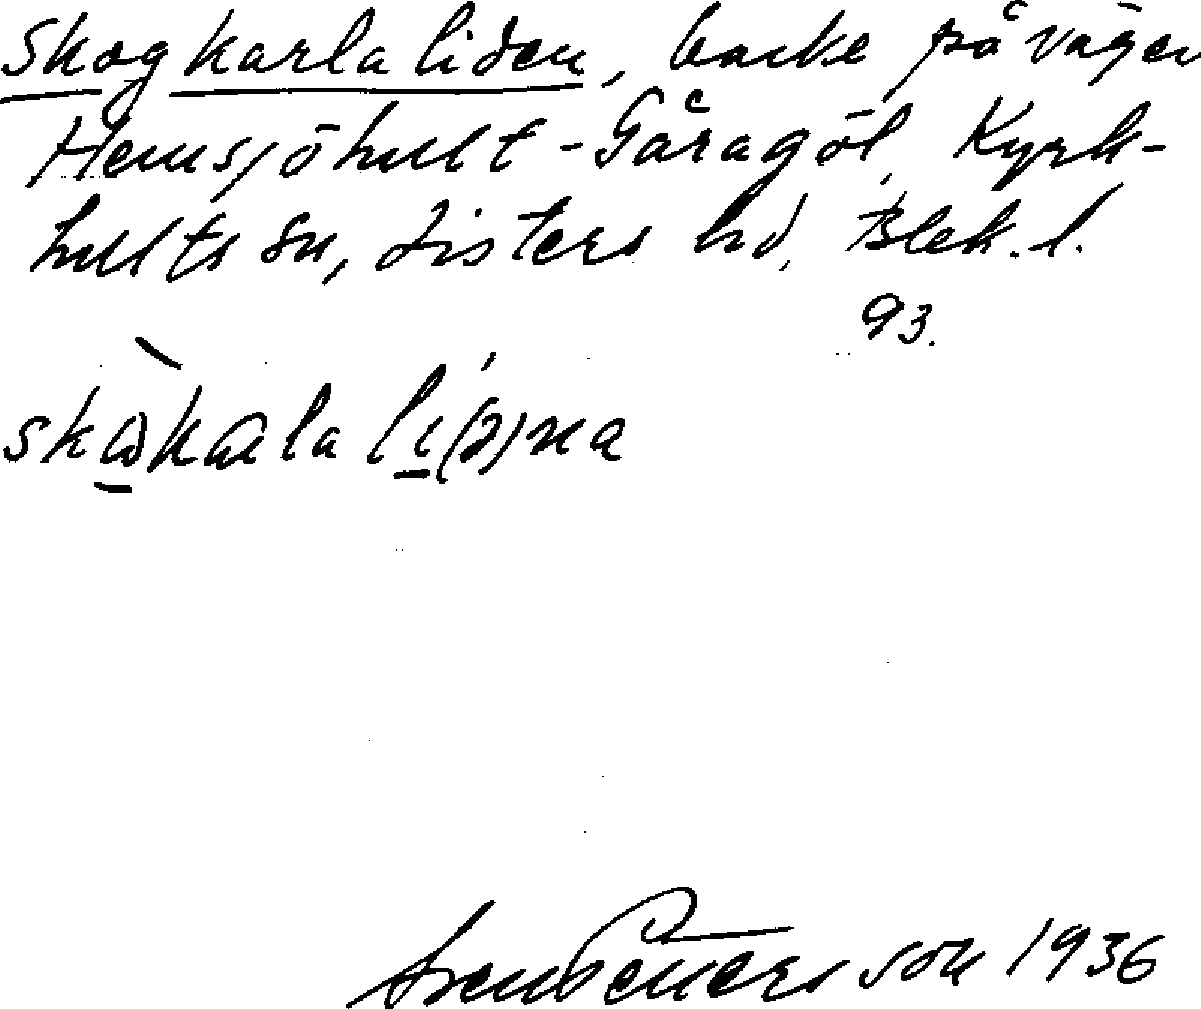 Skogkarlaliden, backe på vägen
Hemsjöhult - Gåragöl, Kyrk-
hults sn, Listers hd, Blek. l.
93.
Sven Benson 1936